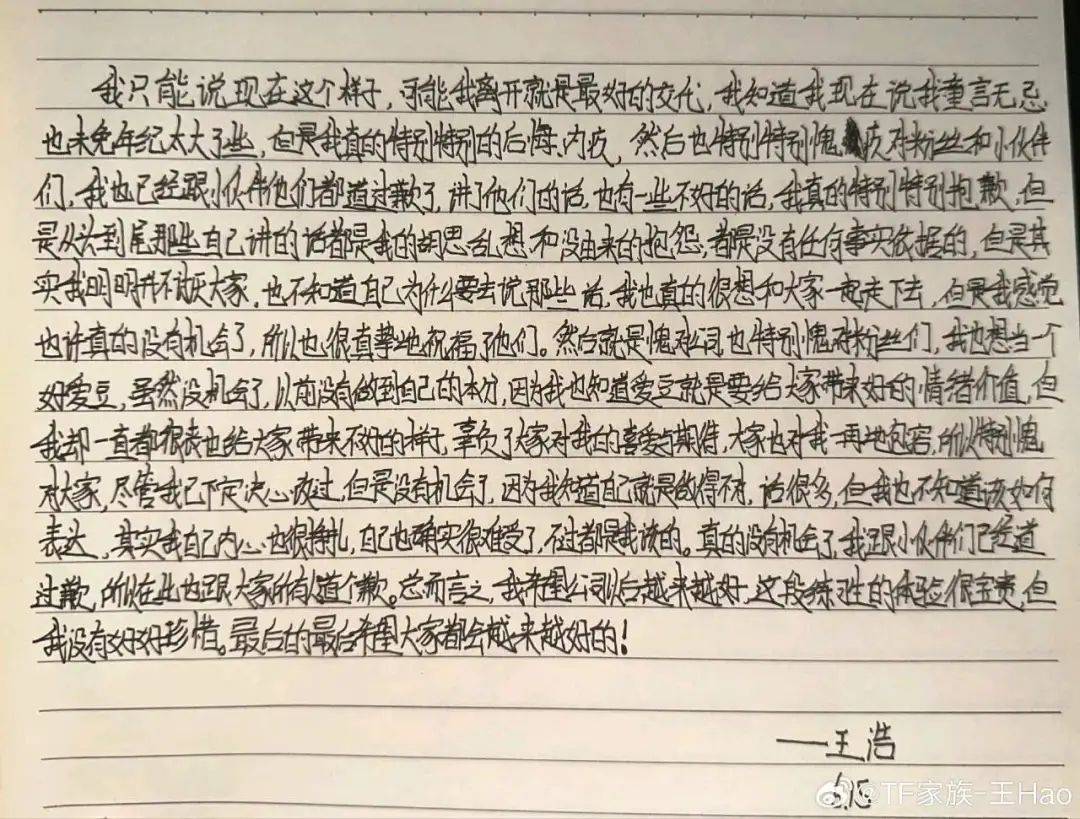 我只能说现在这个样子,可能我离开就是最好的交代,我知道我现在说我童言无忌
也未免年纪太大了些,但是我真的特别特别的后悔、内疚,然后也特别特别愧疚对粉丝和小伙伴
们,我也已经跟小伙伴他们都道过歉了,讲了他们的话,也有一些不好的话,我真的特别特别抱歉,但
是从头到尾那些自己讲的话都是我的胡思乱想和没由来的抱怨,都是没有任何事实依据的,但是其
实我明明并不讨厌大家,也不知道自己为什么要去说那些话,我也真的很想和大家一起走下去,但是我感觉
也许真的没有机会了,所以也很真挚地祝福了他们。然后就是愧对公司,也特别愧对粉丝们,我也想当一个
好爱豆,虽然没机会了,以前没有做到自己的本分,因为我也知道爱豆就是要给大家带来好的情绪价值,但
我却一直都很丧也给大家带来不好的样子,辜负了大家对我的喜爱与期待,大家也对我一再地包容,所以特别愧
对大家,尽管我已下定决心改过,但是没有机会了,因为我知道自己就是做得不对,话很多,但我也不知道该如何
表达,其实我自己内心也很挣扎,自己也确实很难受了,不过都是我该的。真的没有机会了,我跟小伙伴们已经道
过歉,所以在此也跟大家所有人道个歉。总而言之,我希望公司以后越来越好,这段练习生的体验很宝贵,但
我没有好好珍惜。最后的最后希望大家都会越来越好的!
——王浩
@TF家族-王Hao